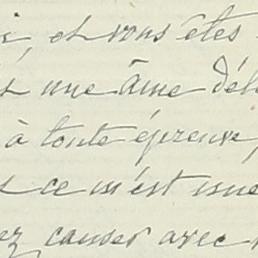 et vous êtes
une âme dél
à toute épreuve,
ce m'est une
causer avec